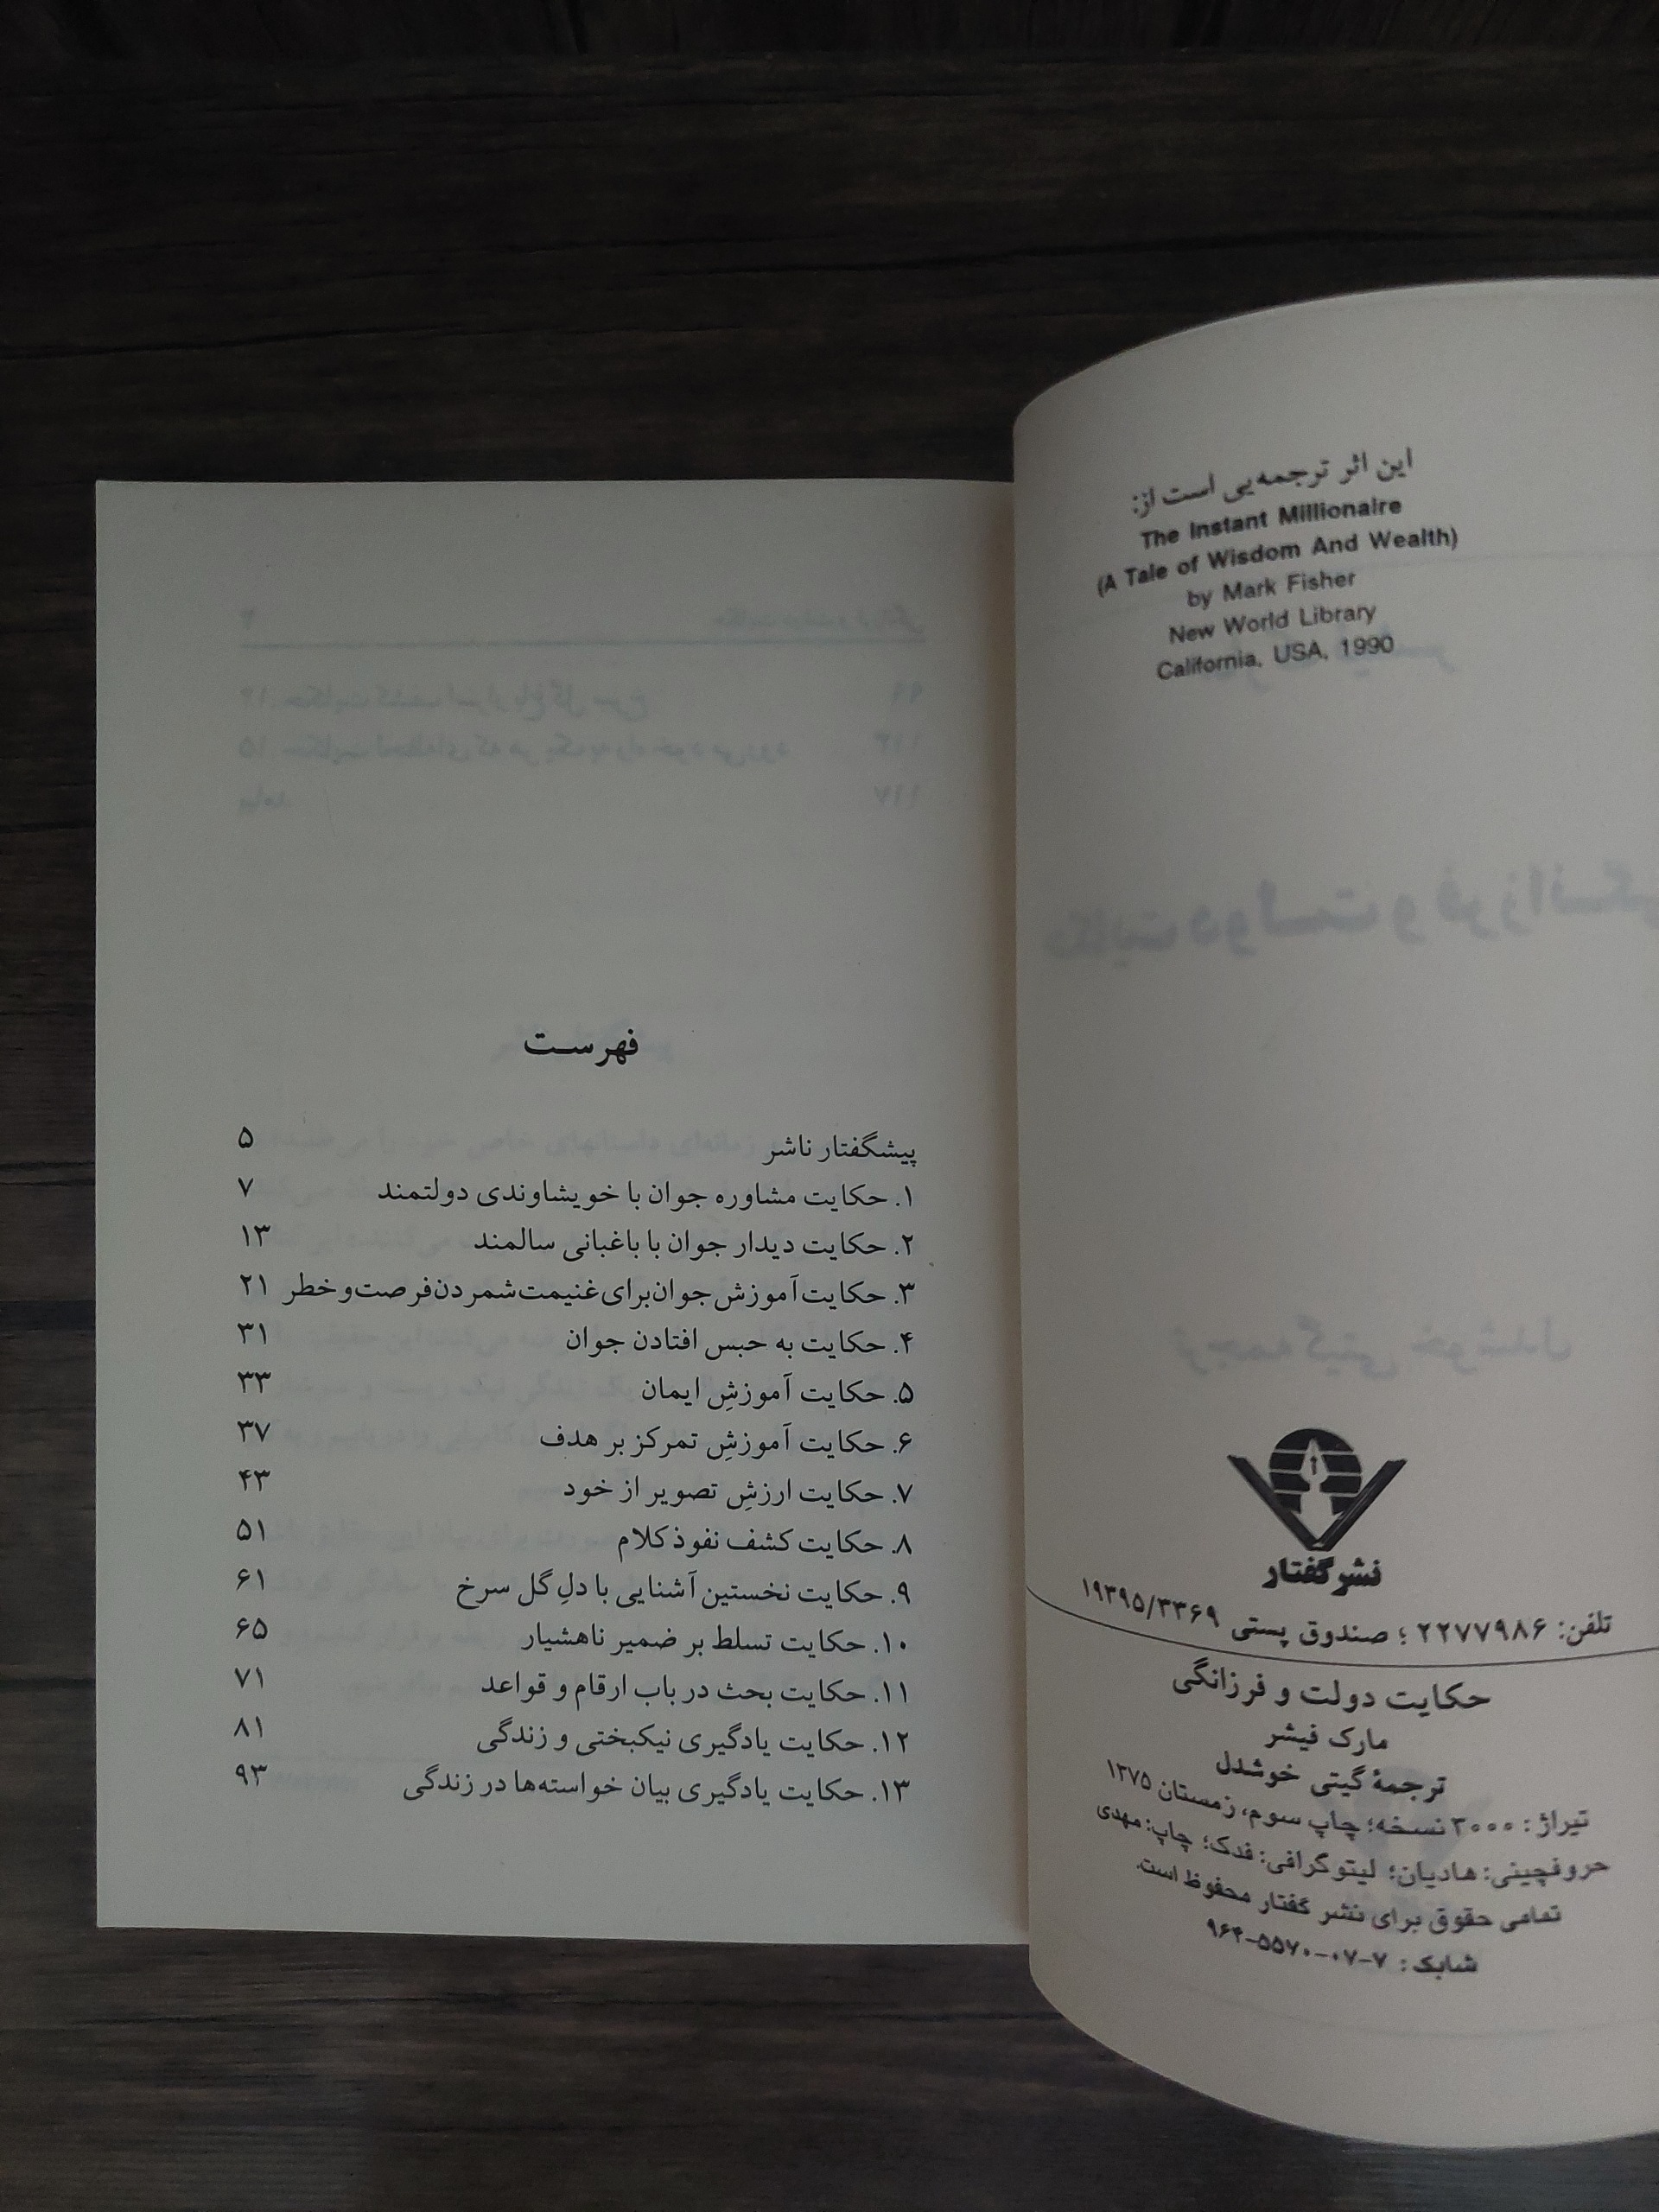 این اثر ترجمه‌یی است از:
The Instant Millionaire
(A Tale of Wisdom And Wealth)
by Mark Fisher
New World Library
California, USA, 1990
نشر گفتار
تلفن: ۲۲۷۷۹۸۶ ؛ صندوق پستی ۱۹۳۹۵/۳۳۶۹
حکایت دولت و فرزانگی
مارک فیشر
ترجمهٔ گیتی خوشدل
تیراژ: ۳۰۰۰ نسخه؛ چاپ سوم، زمستان ۱۳۷۵
حروفچینی: هادیان؛ لیتوگرافی: فدک؛ چاپ: مهدی
تمامی حقوق برای نشر گفتار محفوظ است.
شابک: ۷-۰۷-۵۵۷۰-۹۶۴
فهرست
پیشگفتار ناشر ۵
۱. حکایت مشاوره جوان با خویشاوندی دولتمند ۷
۲. حکایت دیدار جوان با باغبانی سالمند ۱۳
۳. حکایت آموزش جوان برای غنیمت شمردن فرصت و خطر ۲۱
۴. حکایت به حبس افتادن جوان ۳۱
۵. حکایت آموزشِ ایمان ۳۳
۶. حکایت آموزشِ تمرکز بر هدف ۳۷
۷. حکایت ارزشِ تصویر از خود ۴۳
۸. حکایت کشف نفوذ کلام ۵۱
۹. حکایت نخستین آشنایی با دلِ گل سرخ ۶۱
۱۰. حکایت تسلط بر ضمیر ناهشیار ۶۵
۱۱. حکایت بحث در باب ارقام و قواعد ۷۱
۱۲. حکایت یادگیری نیکبختی و زندگی ۸۱
۱۳. حکایت یادگیری بیان خواسته‌ها در زندگی ۹۳